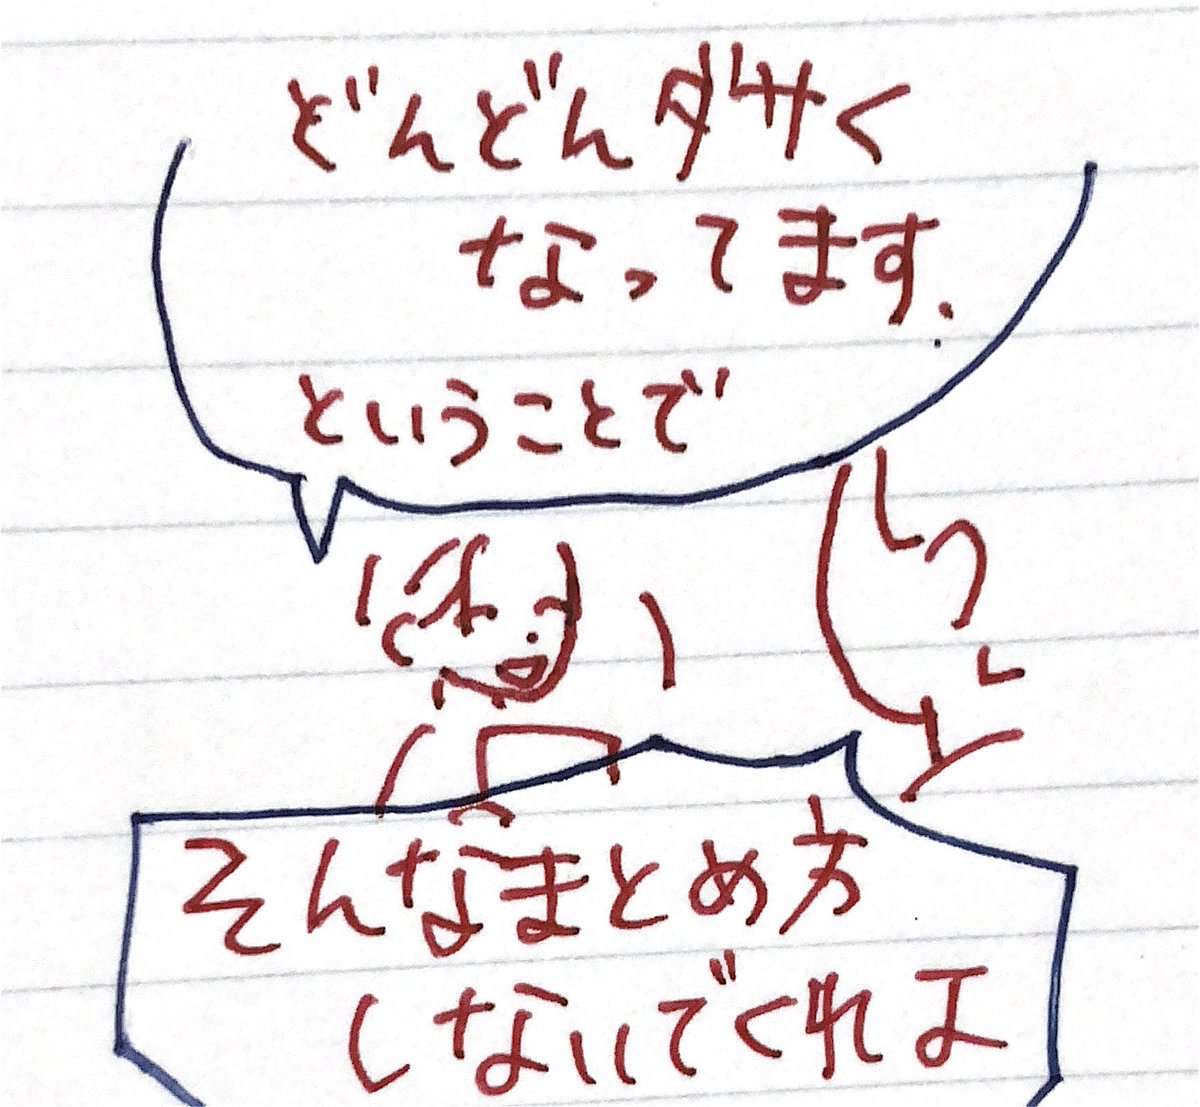 どんどんダサく
なってます.
ということで
そんなまとめ方
しないでくれよ